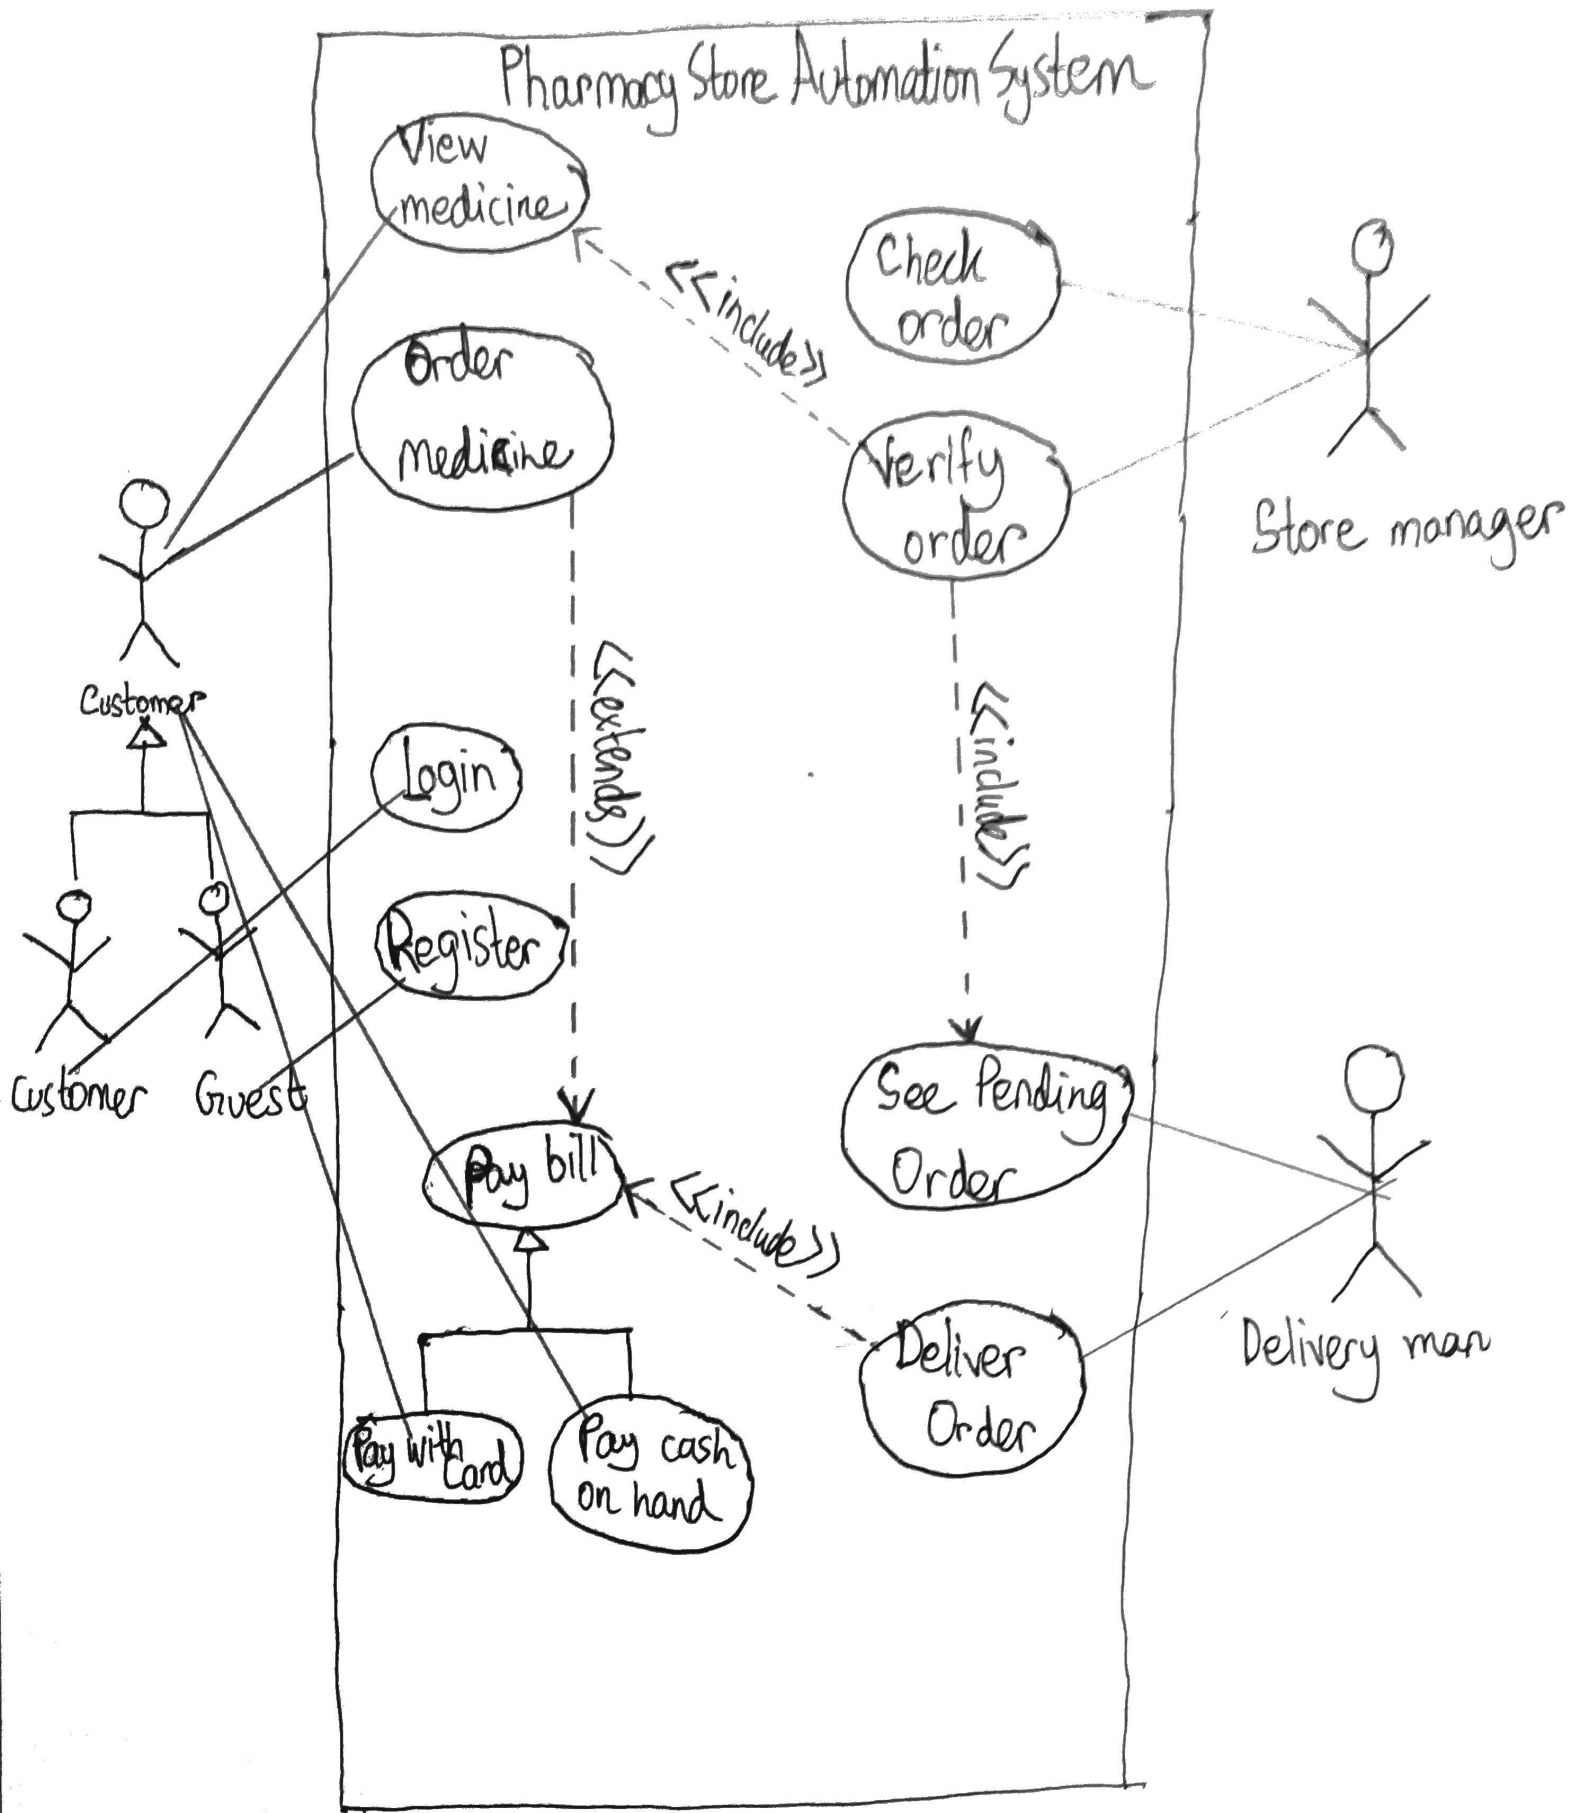 Pharmacy Store Automation System
View
medicine
<<include>>
Check
order
Order
medicine
Verify
order
Store manager
Customer
<<extends>>
<<include>>
Login
Register
Customer
Guest
Pay bill
<<include>>
See Pending
Order
Deliver
Order
Delivery man
Pay with
Card
Pay cash
on hand